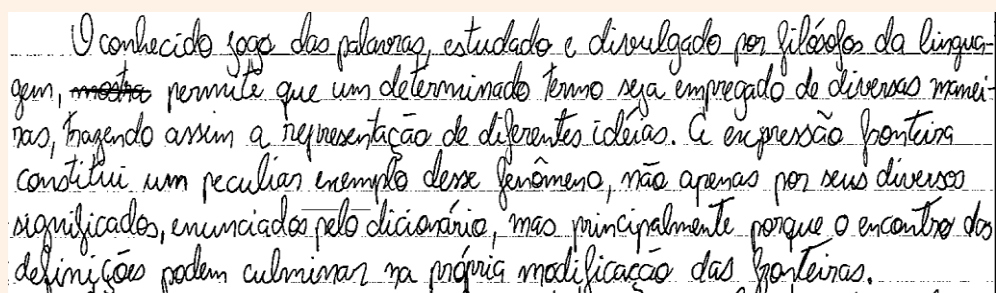 O conhecido jogo das palavras, estudado e divulgado por filósofos da lingua-
gem, mostra permite que um determinado termo seja empregado de diversas manei-
ras, trazendo assim a representação de diferentes idéias. A expressão fronteira
constitui um peculiar exemplo desse fenômeno, não apenas por seus diversos
significados, enunciados pelo dicionário, mas principalmente porque o encontro das
definições podem culminar na própria modificação das fronteiras.